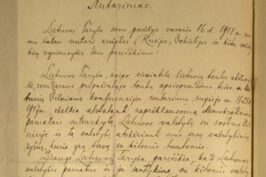 Nutarimas.
Lietuvos Taryba savo posėdyje vasario 16 d. 1918 m.
vienu balsu nutarė kreiptis į Rusijos, Vokietijos ir kitų vals-
tybių vyriausybes šiuo pareiškimu:
Lietuvos Taryba, kaipo vienintelė lietuvių tautos atstovy-
bė, remdamos pripažintąja tautų apsisprendimo teise ir
Vilniaus konferencijos nutarimu rugsėjo m.
skelbia atstatanti nepriklausomą demokratiniais
pamatais sutvarkytą Lietuvos valstybę su sostine Vil-
niuje ir tą valstybę atskirianti nuo visų valstybinių
ryšių, kurie yra buvę su kitomis tautomis.
Drauge Lietuvos Taryba pareiškia, kad Lietuvos
valstybės pamatus ir jos santykius su kitomis valsty-